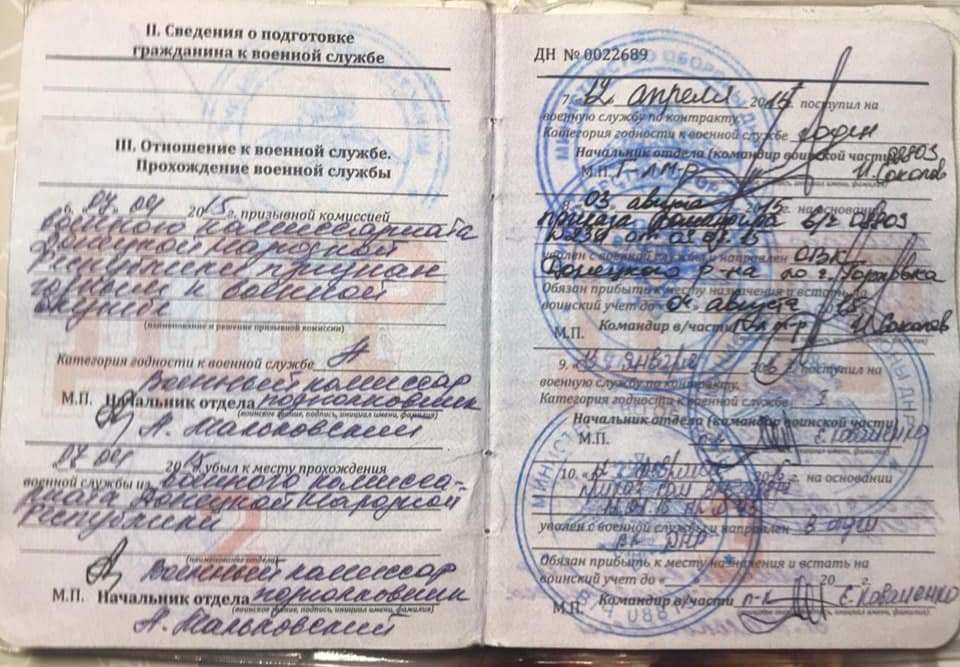 II. Сведения о подготовке
гражданина к военной службе
III. Отношение к военной службе.
Прохождение военной службы
6. 07.04 2015 г. призывной комиссией
военного комиссариата
Донецкой Народной
Республики признан
годным к военной
службе
(наименование и решение призывной комиссии)
Категория годности к военной службе А
Военный комиссар
М.П. Начальник отдела подполковник
(воинское звание, подпись, инициал имени, фамилия)
А. Мальковский
07.04 2015 убыл к месту прохождения
военной службы из военного комисса-
риата Донецкой Народной
Республики
(наименование отдела)
Военный комиссар
М.П. Начальник отдела подполковник
(воинское звание, подпись, инициал имени, фамилия)
А. Мальковский
ДН № 0022689
7. апреля г. поступил на
военную службу по контракту.
Категория годности к военной службе годен
Начальник отдела (командир воинской части) 08803
М.П. И. Соколов
03 августа 2015 г. на основании
приказа в/ч 08803
от 03.07.15
уволен с военной службы и направлен ОВК
Донецкого р-на по г. Горловка
Обязан прибыть к месту назначения и встать на
воинский учет до «04 августа 15
М.П. Командир в/части И. Соколов
9. января поступил на
военную службу по контракту.
Категория годности к военной службе
Начальник отдела (командир воинской части)
М.П. Е. Коваленко
10. 2016 г. на основании
уволен с военной службы и направлен
ВК ДНР
Обязан прибыть к месту назначения и встать на
воинский учет до « 20 г.
М.П. Командир в/части п-к Е. Коваленко